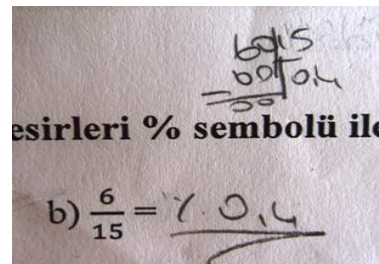 60 15
60 0,4
00
esirleri % sembolü ile
b) 6/15 = % 0,4